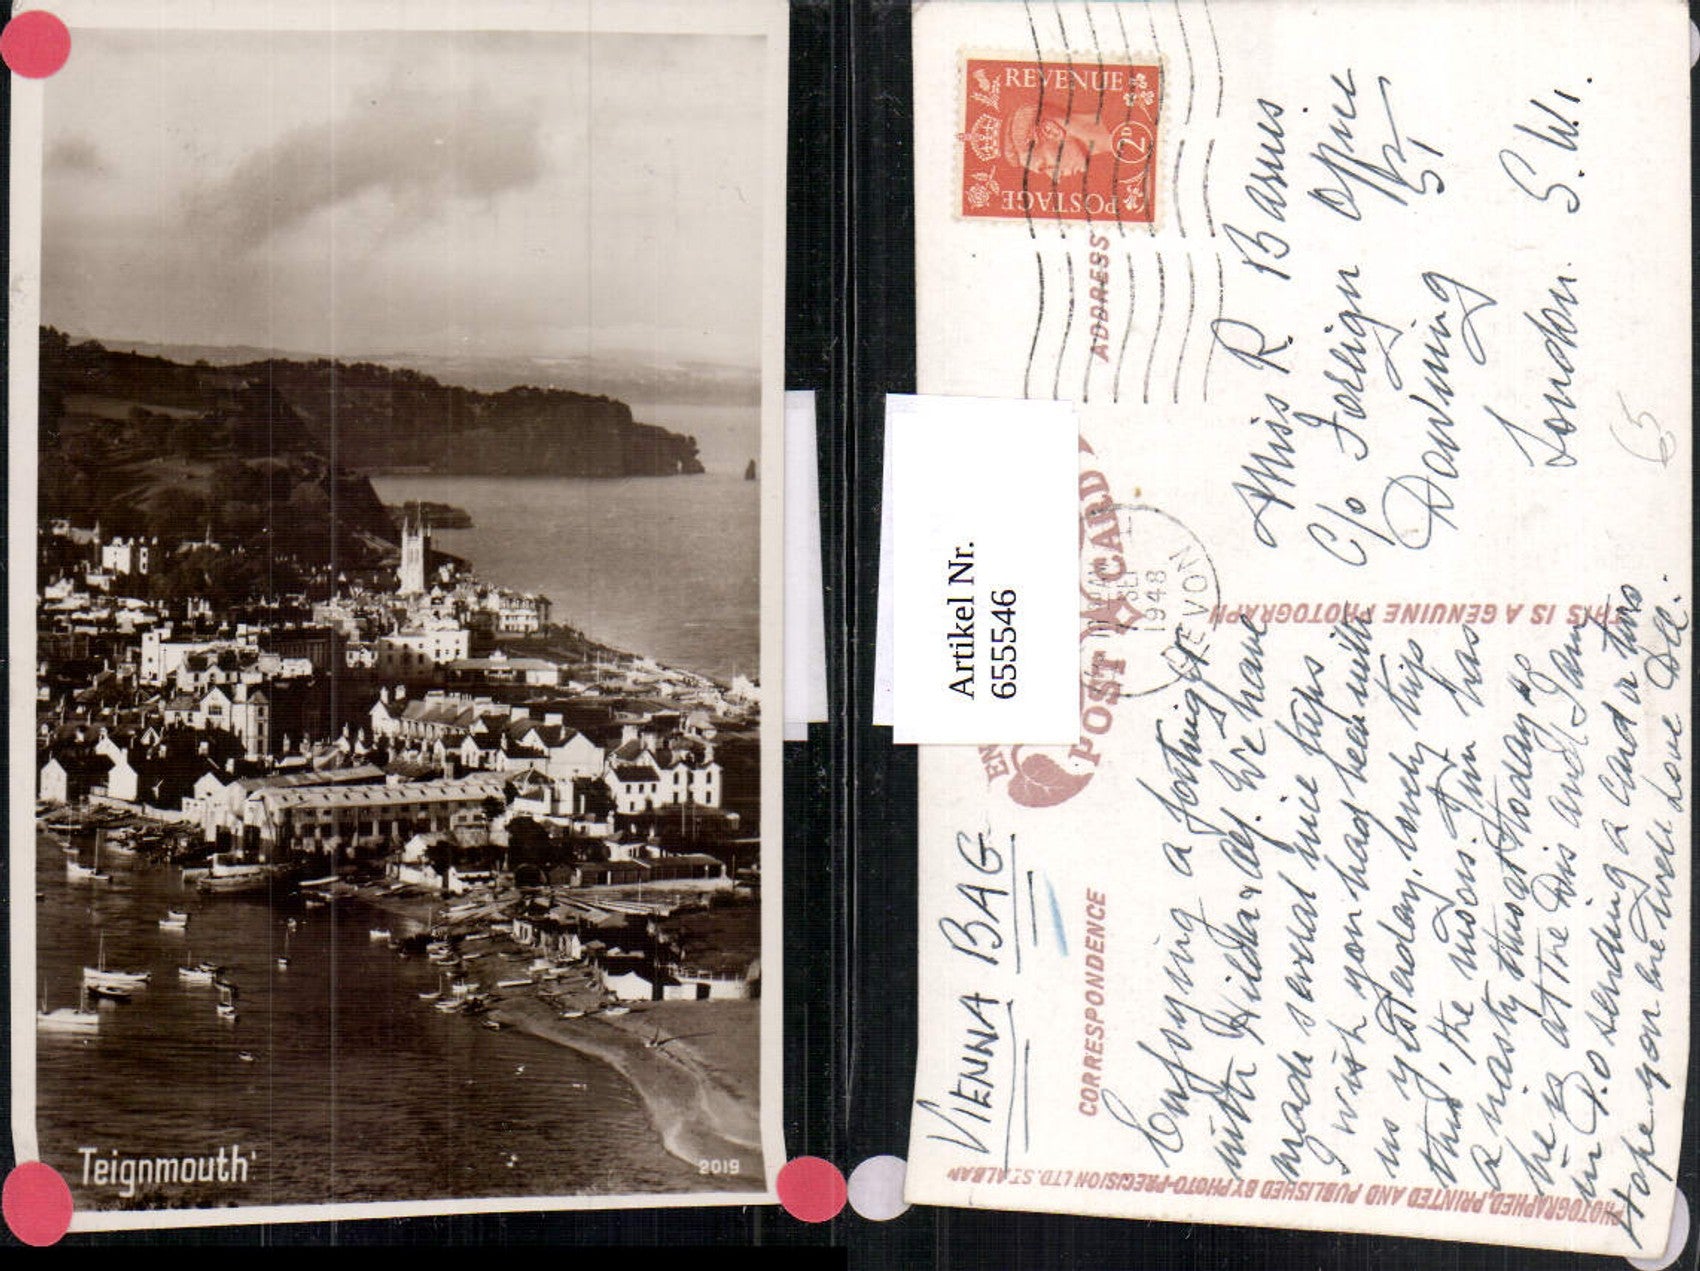 Teignmouth
2019
REVENUE
2D
POSTAGE
ADDRESS
POST CARD
DEVON
SEP
1948
Artikel Nr.
655546
VIENNA BAG
CORRESPONDENCE
THIS IS A GENUINE PHOTOGRAPH
PHOTOGRAPHED, PRINTED AND PUBLISHED BY PHOTO-PRECISION LTD. ST. ALBAN
Miss R. Barnes
C/o Foreign Office
Downing St
London. S.W.1.
65
Enjoying a fortnight
with Hilda & Alf. We have
made several nice trips
I wish you had been with
us yesterday, lovely trip
thro' the moors. Jim has
a nasty throat today &
he is at the Drs and I am
in P.O sending a card or two
Hope you are well Love Doll.